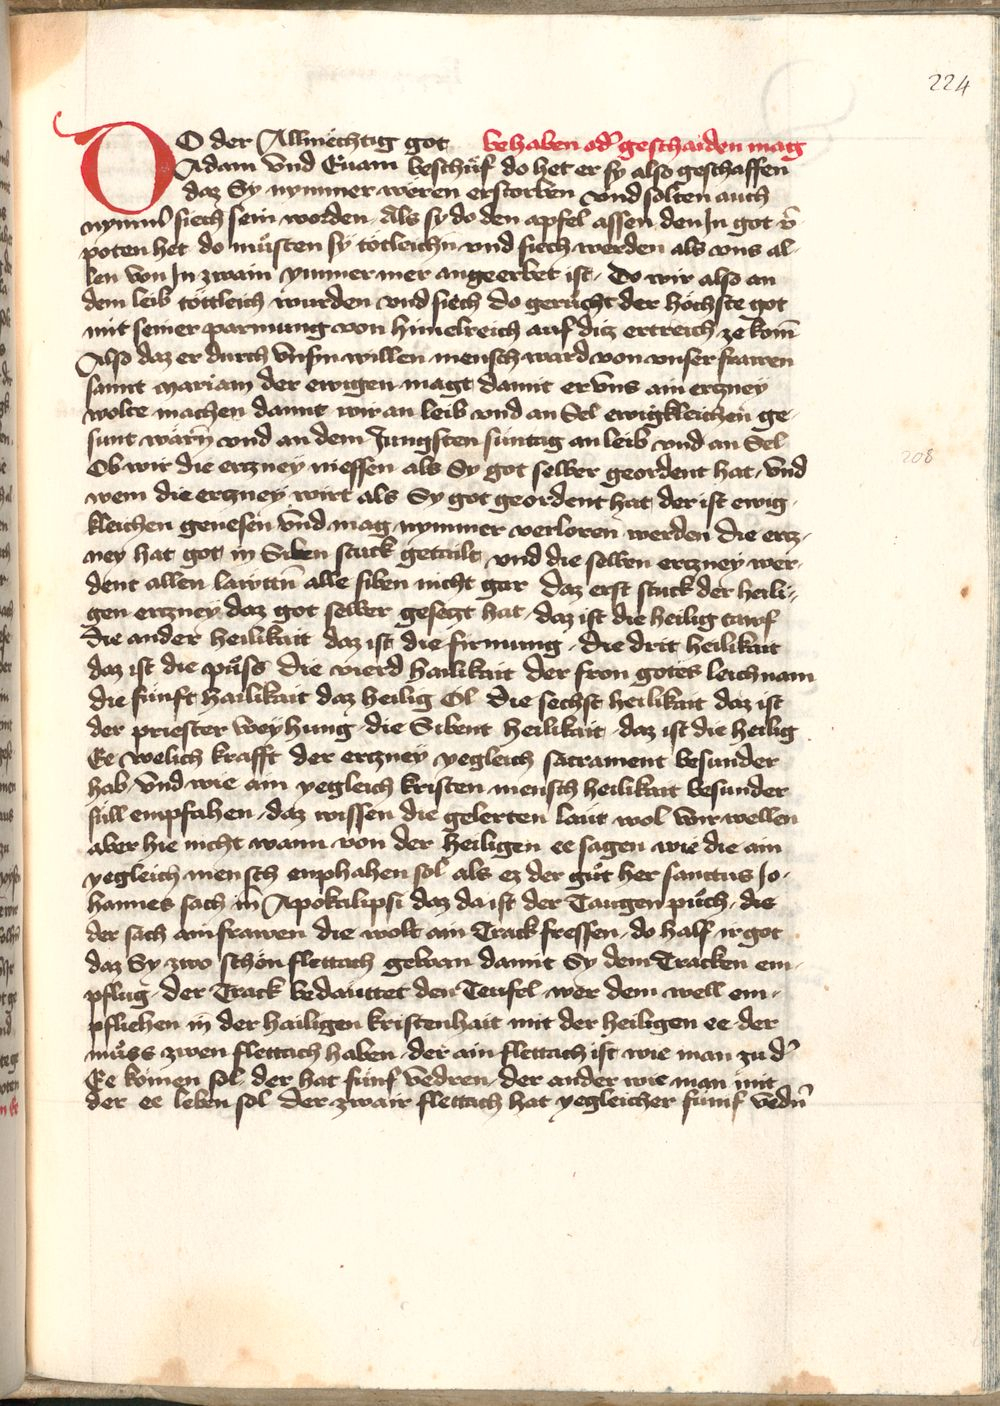 224
DO der Allmëchtig got behaben od̕ geschaiden mag
Adam vnd Euam beschüf do het er sy also geschaffen
daz Sy nymmer wëren erstorben vnd solten auch
nymm̄ siech sein worden. Als sy do den apfel assen den Jn got v̄
poten het do mu̇sten sy tötleichn̄ vnd siech werden als vns al-
len von Jn zwain ymmermer angeerbet ist. Do wir also an
dem leib töttleich wurden vnd siech do gerücht der höchste got
mit seiner parmung von himelreich auf ditz ertreich ze kom̄
Also daz er durch vnsn̄ willen mensch ward von vnser frawen
sannt mariam der ewigen magt damit er vns ain ertzney
wolte machen damit wir an leib vnd an Sel ewigkleichen ge-
sunt wärn̄ vnd an dem Jungsten süntag an leib vnd an Sel
Ob wir die ertzney niessen als Sy got selber geordent hat, vnd
wem die ertzney wirt als Sy got geordent hat der ist ewig-
kleichen genesen vnd mag nymmer verloren werden die ertz-
ney hat got in Siben stuck getailt vnd die selben ertzney wer-
dent allen läwttn̄ alle siben nicht gar daz erst stuck der heili-
gen ertzney daz got selber gesetzt hat. daz ist die heilig tawf
die ander heilikait daz ist die firmung. die drit heilikait
daz ist die pu̇ss die vierd hailikait der fron gotes leichnam
die fünft hailikait daz heilig Ol die sechst heilikait daz ist
der priester weyhung. die Sibent heilikait. daz ist die heilig
Ee welich krafft der ertzney yegleich sacrament besunder
hab vnd wie ain yegleich kristen mensch heilikait besunder
süll empfahen. daz wissen die gelerten läut wol wir wellen
aber hie nicht wann von der heiligen ee sagen wie die ain
yegleich mensch emphahen sol als ez der gu̇t her sanctus Jo-
208
hannes sach in Apokalipsi daz da ist der Taugen pu̇ch. die
der sach ain frawen die wolt ain Track fressen. do half ir got
daz Sy zwo schön flettach gewan damit Sy dem Tracken em-
pflüg. der Track bedäuttet den Teufel wer dem well em-
pfliehen in der hailigen kristenhait mit der heiligen ee der
mu̇ss zwen flettach haben. der ain flettach ist wie man zu d̕
Ee komen sol. der hat fünf vedren. der ander wie man mit
der ee leben sol der zwair flettach hat yegleicher fünf vedn̄